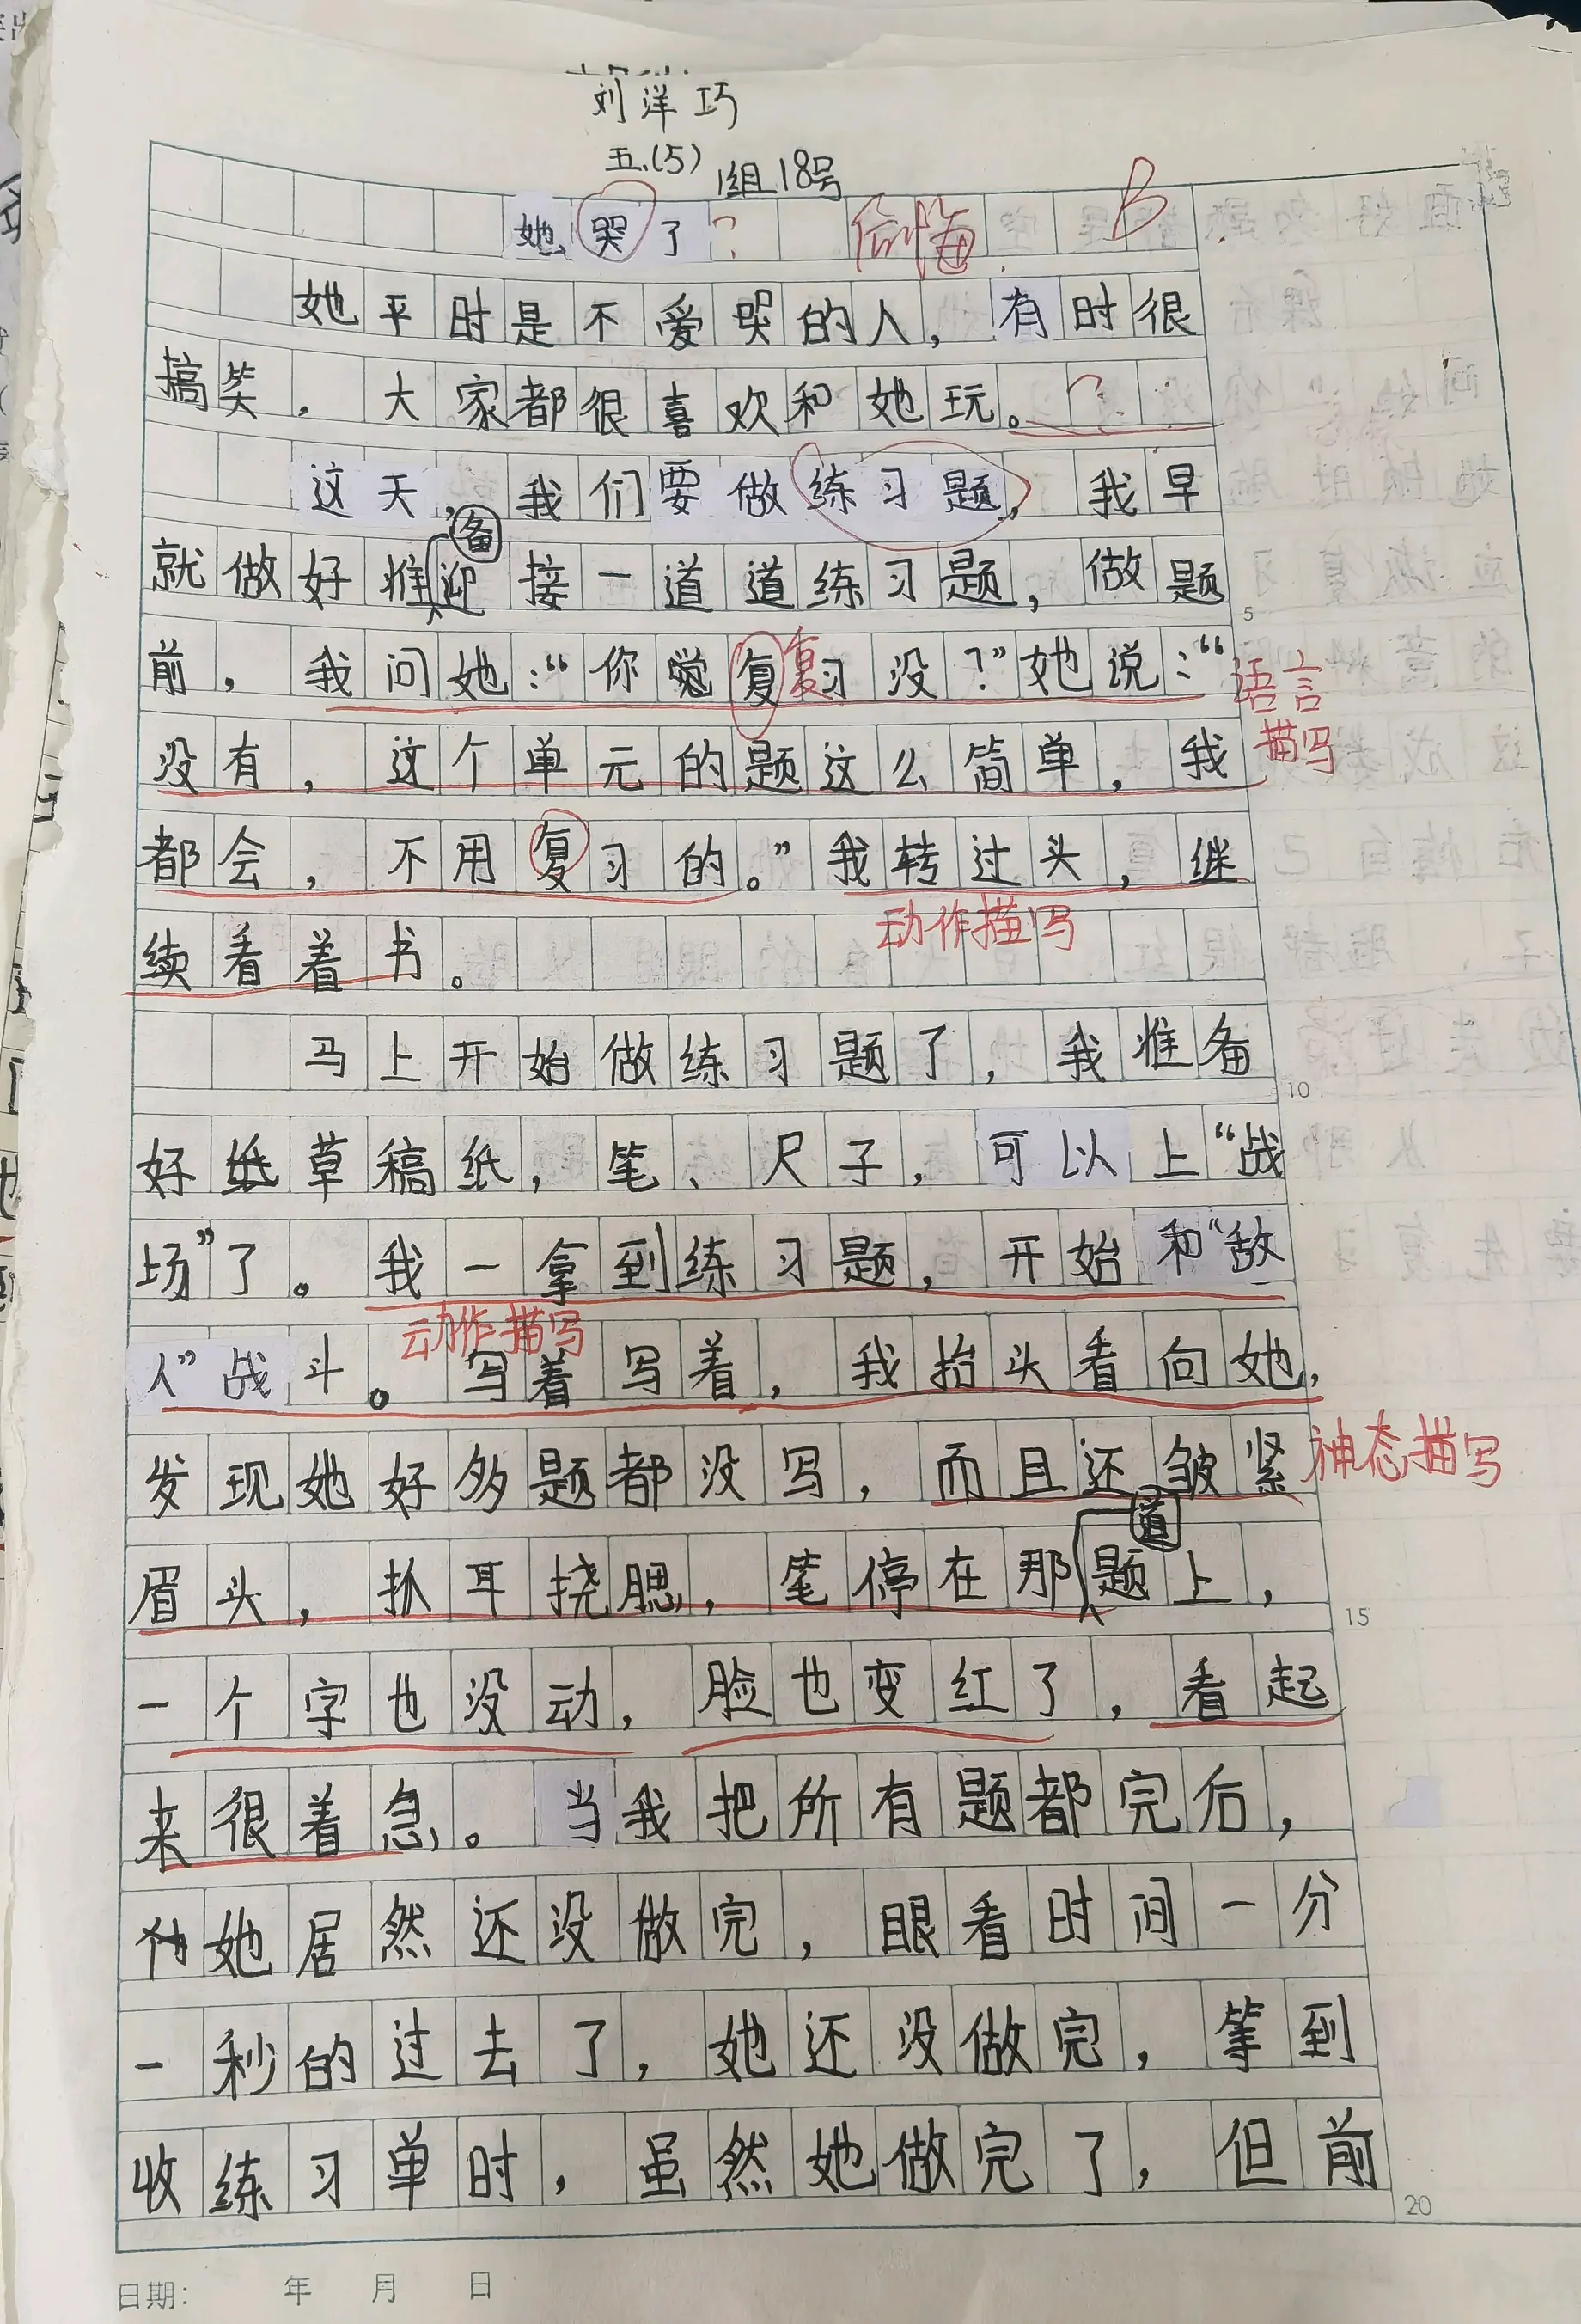 刘洋巧
五.(5) 1组18号
她哭了? 后悔 B
她平时是不爱哭的人，有时很
搞笑，大家都很喜欢和她玩。?
这天，我们要做练习题，我早
就做好准备迎接一道道练习题，做题
前，我问她：“你复习没？”她说：“
复
语言
描写
没有，这个单元的题这么简单，我
都会，不用复习的。”我转过头，继
动作描写
续看着书。
马上开始做练习题了，我准备
好草稿纸，笔、尺子，可以上“战
场”了。我一拿到练习题，开始和“敌
动作描写
人”战斗。写着写着，我抬头看向她，
发现她好多题都没写，而且还皱紧
神态描写
眉头，抓耳挠腮，笔停在那道题上，
一个字也没动，脸也变红了，看起
来很着急。当我把所有题都完后，
她居然还没做完，眼看时间一分
一秒的过去了，她还没做完，等到
收练习单时，虽然她做完了，但前
5
10
15
20
日期： 年 月 日